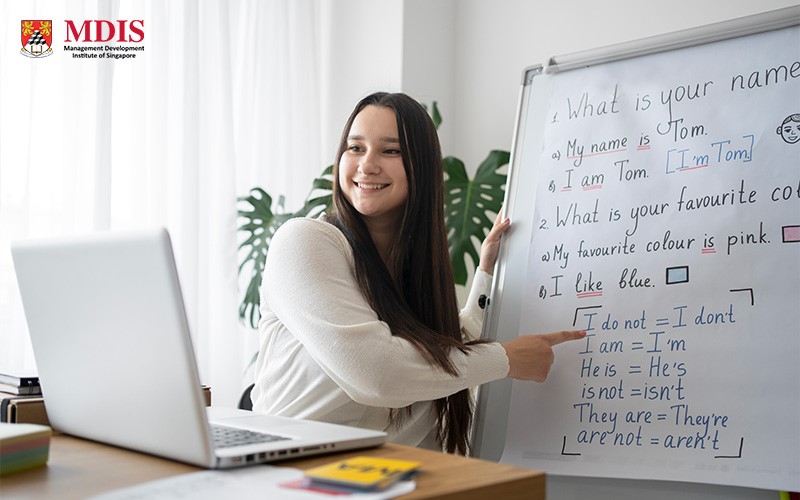 MDIS
Management Development
Institute of Singapore
1. What is your name
a) My name is Tom.
b) I am Tom. [I'm Tom.]
2. What is your favourite co
a) My favourite colour is pink.
b) I like blue.
I do not = I don't
I am = I'm
He is = He's
is not = isn't
They are = They're
are not = aren't